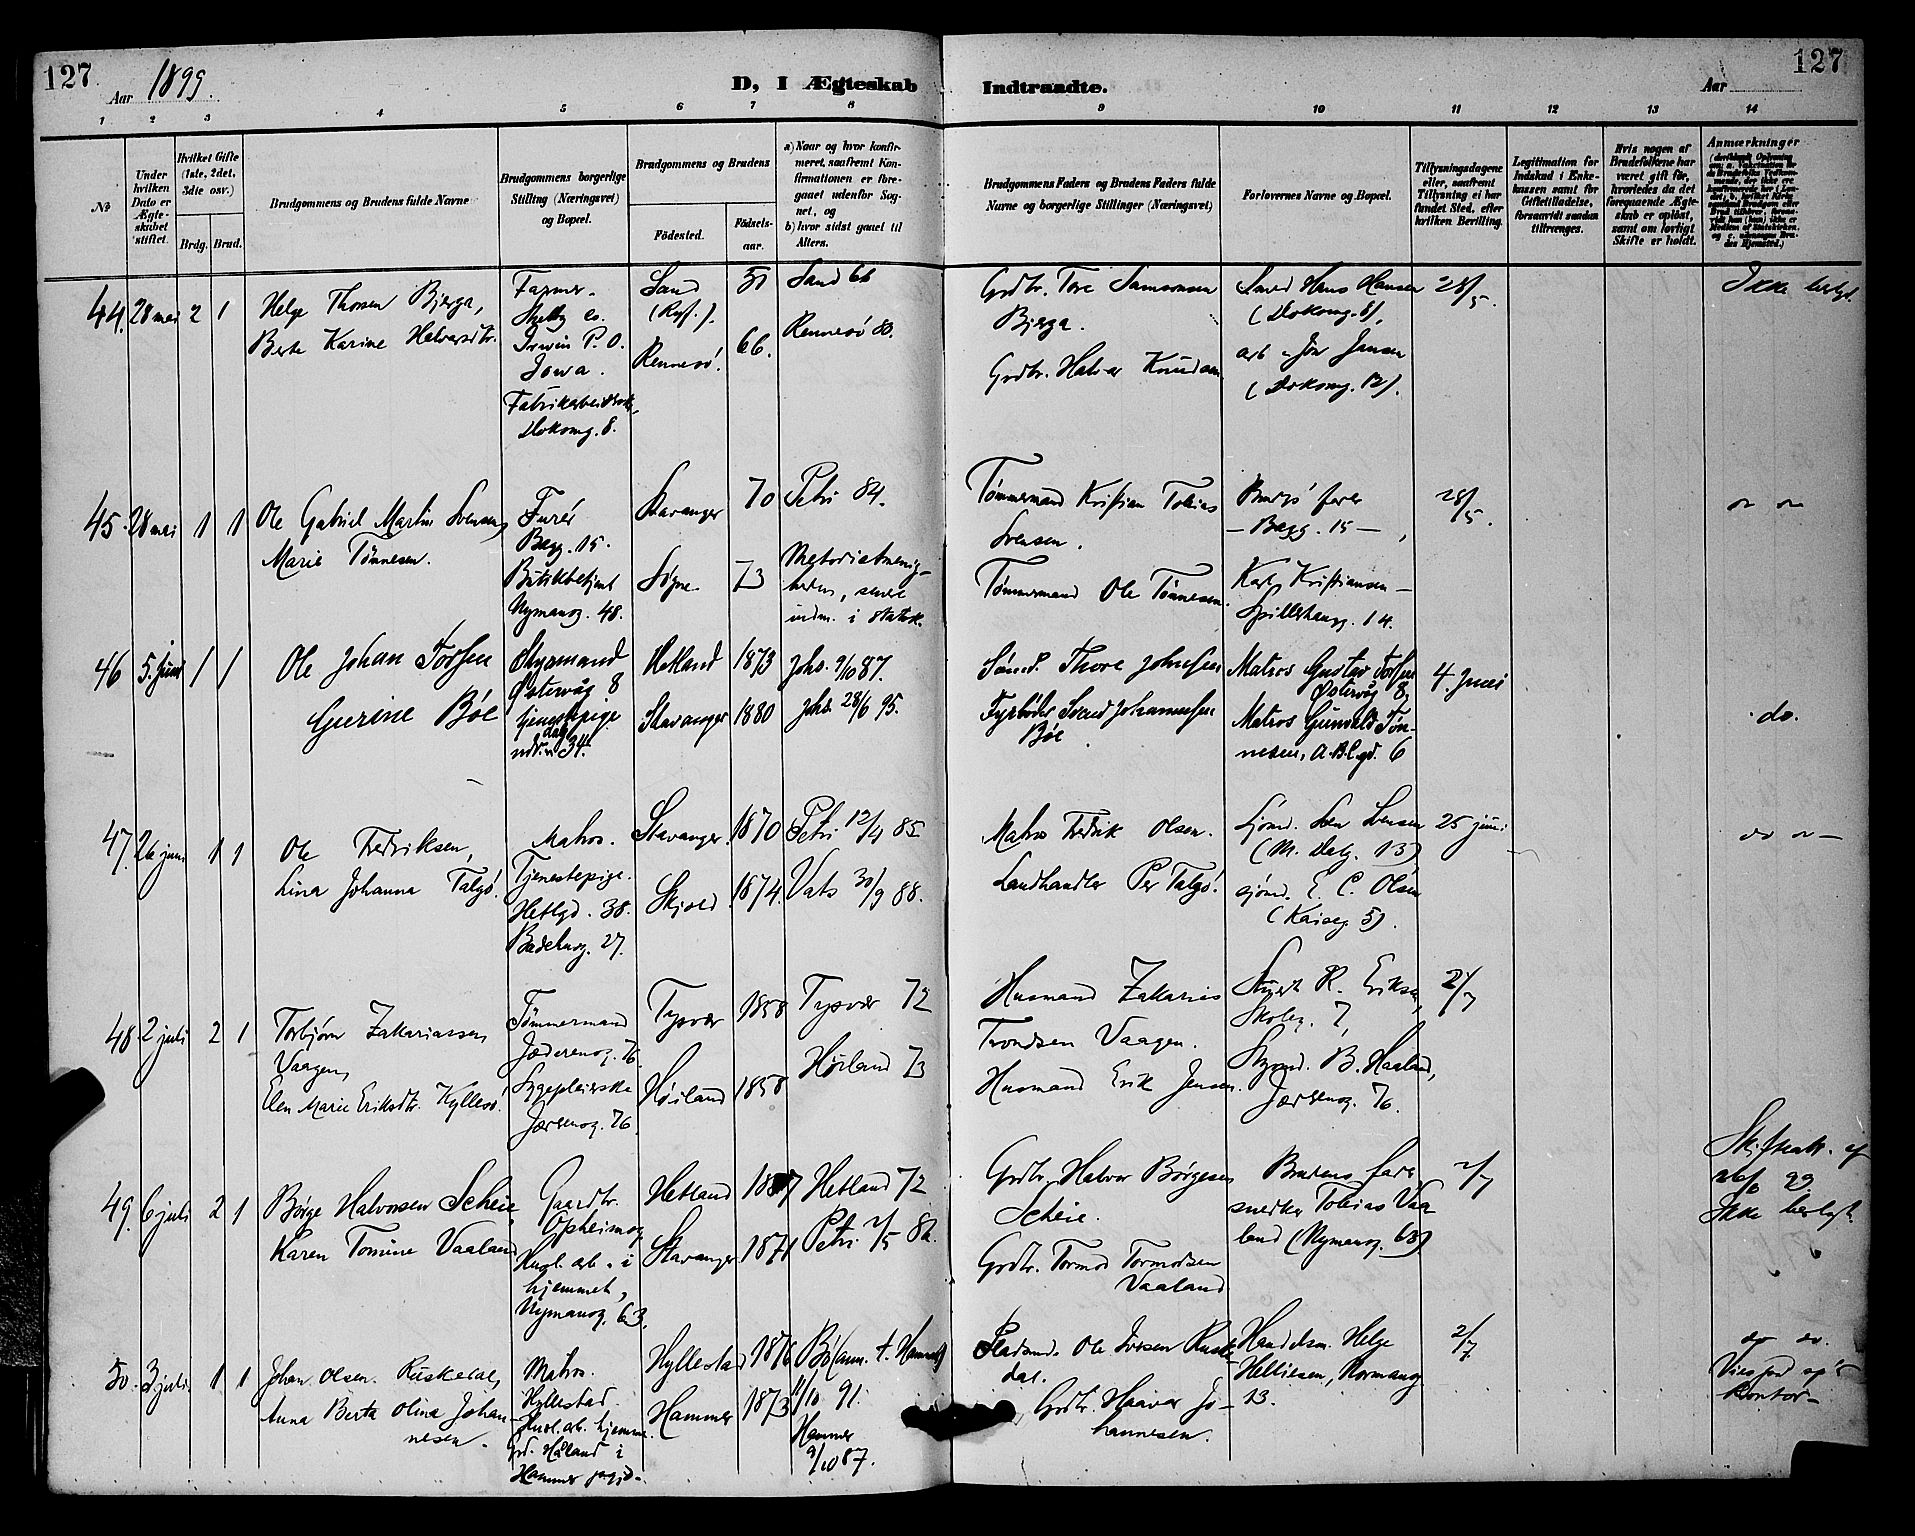 127
Aar 1899.
D, I Ægteskab
Indtraadte.
Aar
127
1 2 3 4 5 6 7 8 9 10 11 12 13 14
No
Under hvilken Dato er Ægteskabet stiftet.
Hvilket Gifte (1ste, 2det, 3die osv.)
Brdg. Brud.
Brudgommens og Brudens fulde Navne
Brudgommens borgerlige Stilling (Næringsvei) og Bopæl.
Brudgommens og Brudens
Fødested.
Fødsels-aar.
a) Naar og hvor konfirmeret, saafremt Konfirmationen er foregaaet udenfor Sognet, og
b) hvor sidst gaaet til Alters.
Brudgommens Faders og Brudens Faders fulde Navne og borgerlige Stillinger (Næringsvei)
Forlovernes Navne og Bopæl.
Tillysningsdagene eller, saafremt Tillysning ei har fundet Sted, efter hvilken Bevilling.
Legitimation for Indskud i Enkekassen samt for Giftetilladelse, forsaavidt saadan tiltrænges.
Hvis nogen af Brudefolkene har været gift før, hvorledes da det foregaaende Ægteskab er opløst, samt om lovligt Skifte er holdt.
Anmærkninger
44. 28 mai 2 1
Helge Thorsen Bjerga,
Berte Karine Halvorsdtr.
Farmer.
Shelby co.
Irwin P.O.
Iowa.
Fabrikarbeiderske,
Blokomg. 8.
Sand
(Ryf.).
Rennesø.
51
66.
Sand 66
Rennesø 80.
Grdbr. Tore Samsonsen
Bjerga.
Grdbr. Halvor Knudsen
Smed Hans Hansen
(Blokomg. 8),
arb. Jon Jansen
(Blokomg. 12).
28/5.
Ikke beslgt.
45. 28 mai 1 1
Ole Gabriel Martin Svensen,
Marie Tønnesen.
Furér
Begg. 15.
Butikbetjent
Nymansg. 48.
Stavanger
Søgne
70
73
Petri 84.
Metodistmenig-
heden, senere
indm. i statsk.
Tømmermand Kristian Tobias
Svensen.
Tømmermand Ole Tønnesen.
— Begg. 15 —,
Karl Kristiansen —
Spilderhaugg. 14.
28/5.
46 5. juni 1 1
Ole Johan Torsen
Gurine Bøe
Styrmand
Østervåg 8
tjenestepige
ndr. dalg. 34.
Hetland
Stavanger
1873
1880
Johs. 9/10 87.
Johs. 28/6 95.
Sømd. Thore Johnsen
Fyrbøder Svend Johannesen
Bøe
Matros Gustav Torsen
Østervåg 8,
Matros Gunvald Tøn-
nesen, A.B.C.gd. 6
4. juni
do.
47. 26 juni 1 1
Ole Fredriksen,
Lina Johanna Talgø.
Matros.
Tjenestepige.
Hetlgd. 38.
Badehusg. 27.
Stavanger
Skjold
1870
1874.
Petri 12/4 85
Vats 30/9 88.
Matros Fredrik Olsen.
Landhandler Per Talgø.
Sjømd. Sven Svensen
(M. Dalg. 13)
sjømd. E. C. Olsen
(Kaiseg. 5).
25 juni
48. 2 juli 2 1
Torbjørn Zakariassen
Vaagen,
Elen Marie Eriksdtr. Kyllesø.
Tømmermand
Jæderenog. 76.
Sygepleierske
Jærenog. 76.
Tysvær
Høiland
1858
1858
Tysvær 72
Høiland 73
Husmand Zakarias
Trondsen Vaagen.
Husmand Erik Jensen.
Styert R. Eriksen,
Skoleg. 7,
Styrmd. B. Haaland,
Jærenog. 76.
2/7
49. 6 juli 2 1
Børge Halvorsen Scheie,
Karen Tomine Vaaland
Gaardbr.
Opheimsg
Husl. arb. i
hjemmet,
Nymansg. 63.
Hetland
Stavanger
1857
1871
Hetland 72
Petri 2/5 86.
Grdbr. Halvor Børgesen
Scheie.
Grdbr. Tormod Tormodsen
Vaaland
Brudens fader
snedker Tobias Vaa-
land (Nymansg. 63)
2/7
Skifteatt. af
Ikke beslgt.
50. 3 juli 1 1
Johan Olsen Ruskedal,
Anna Berta Olina Johan-
nesen.
Matros.
Hyllestad.
Husl. arb. hjemme
gd. Håland i
Hammer
Hyllestad
Hammer
1876
1873
11/10 91.
Hammer
9/10 87.
Pladsmd. Ole Iversen Ruske-
dal.
Grdbr. Haavar Jo-
hannesen.
Handelsm. Helge
Helliesen, Normansg.
13.
2/7
do do.
kontor